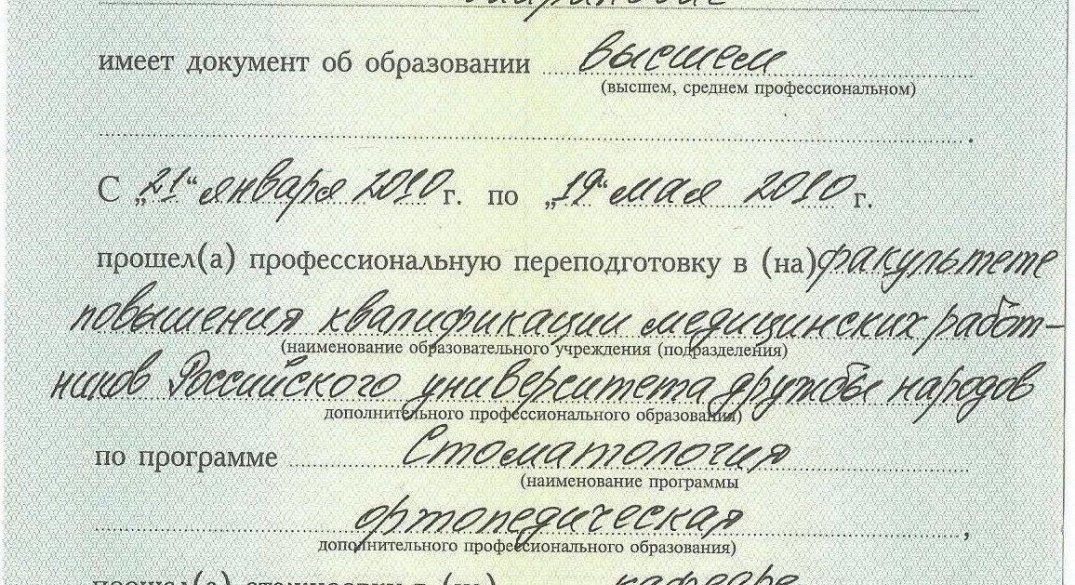 имеет документ об образовании высшем
(высшем, среднем профессиональном)
С „21“ января 2010 г. по „19“ мая 2010 г.
прошел(а) профессиональную переподготовку в (на) факультете
повышения квалификации медицинских работ-
(наименование образовательного учреждения (подразделения)
ников Российского университета дружбы народов
дополнительного профессионального образования)
по программе Стоматология
(наименование программы
ортопедическая,
дополнительного профессионального образования)
прошел(а) стажировку в (на) кафедре